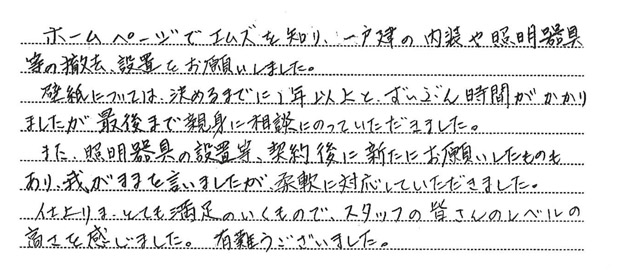 ホームページでエムズを知り、一戸建の内装や照明器具
等の撤去、設置をお願いしました。
壁紙については、決めるまでに1年以上と、ずいぶん時間がかかり
ましたが最後まで親身に相談にのっていただきました。
また、照明器具の設置等、契約後に新たにお願いしたものも
あり、我がままを言いましたが、柔軟に対応していただきました。
仕上りは、とても満足のいくもので、スタッフの皆さんのレベルの
高さを感じました。 有難うございました。